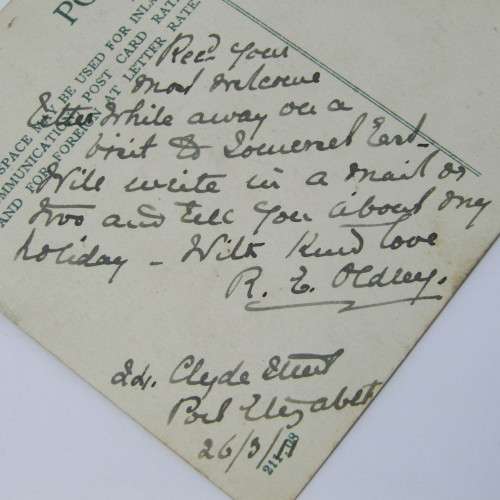 PO
SPACE MAY BE USED FOR INLA
MMUNICATION POST CARD RATE
AND FOR FOREIGN AT LETTER RATE.
Recd your
most welcome
letter while away on a
visit to Somerset East.
Will write in a mail or
two and tell you about my
holiday - With Kind love
R. E. Oldley.
24. Clyde Street
Port Elizabeth
26/3/
211-08